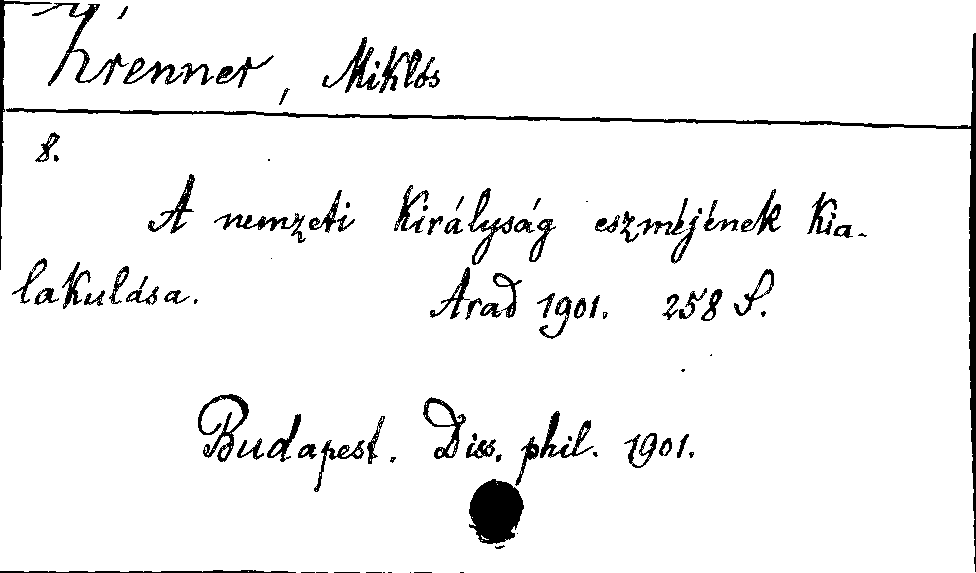 Krenner, Miklós
8.
A nemzeti királyság eszméjének kia-
lakulása. Arad 1901. 258 S.
Budapest. Diss. phil. 1901.